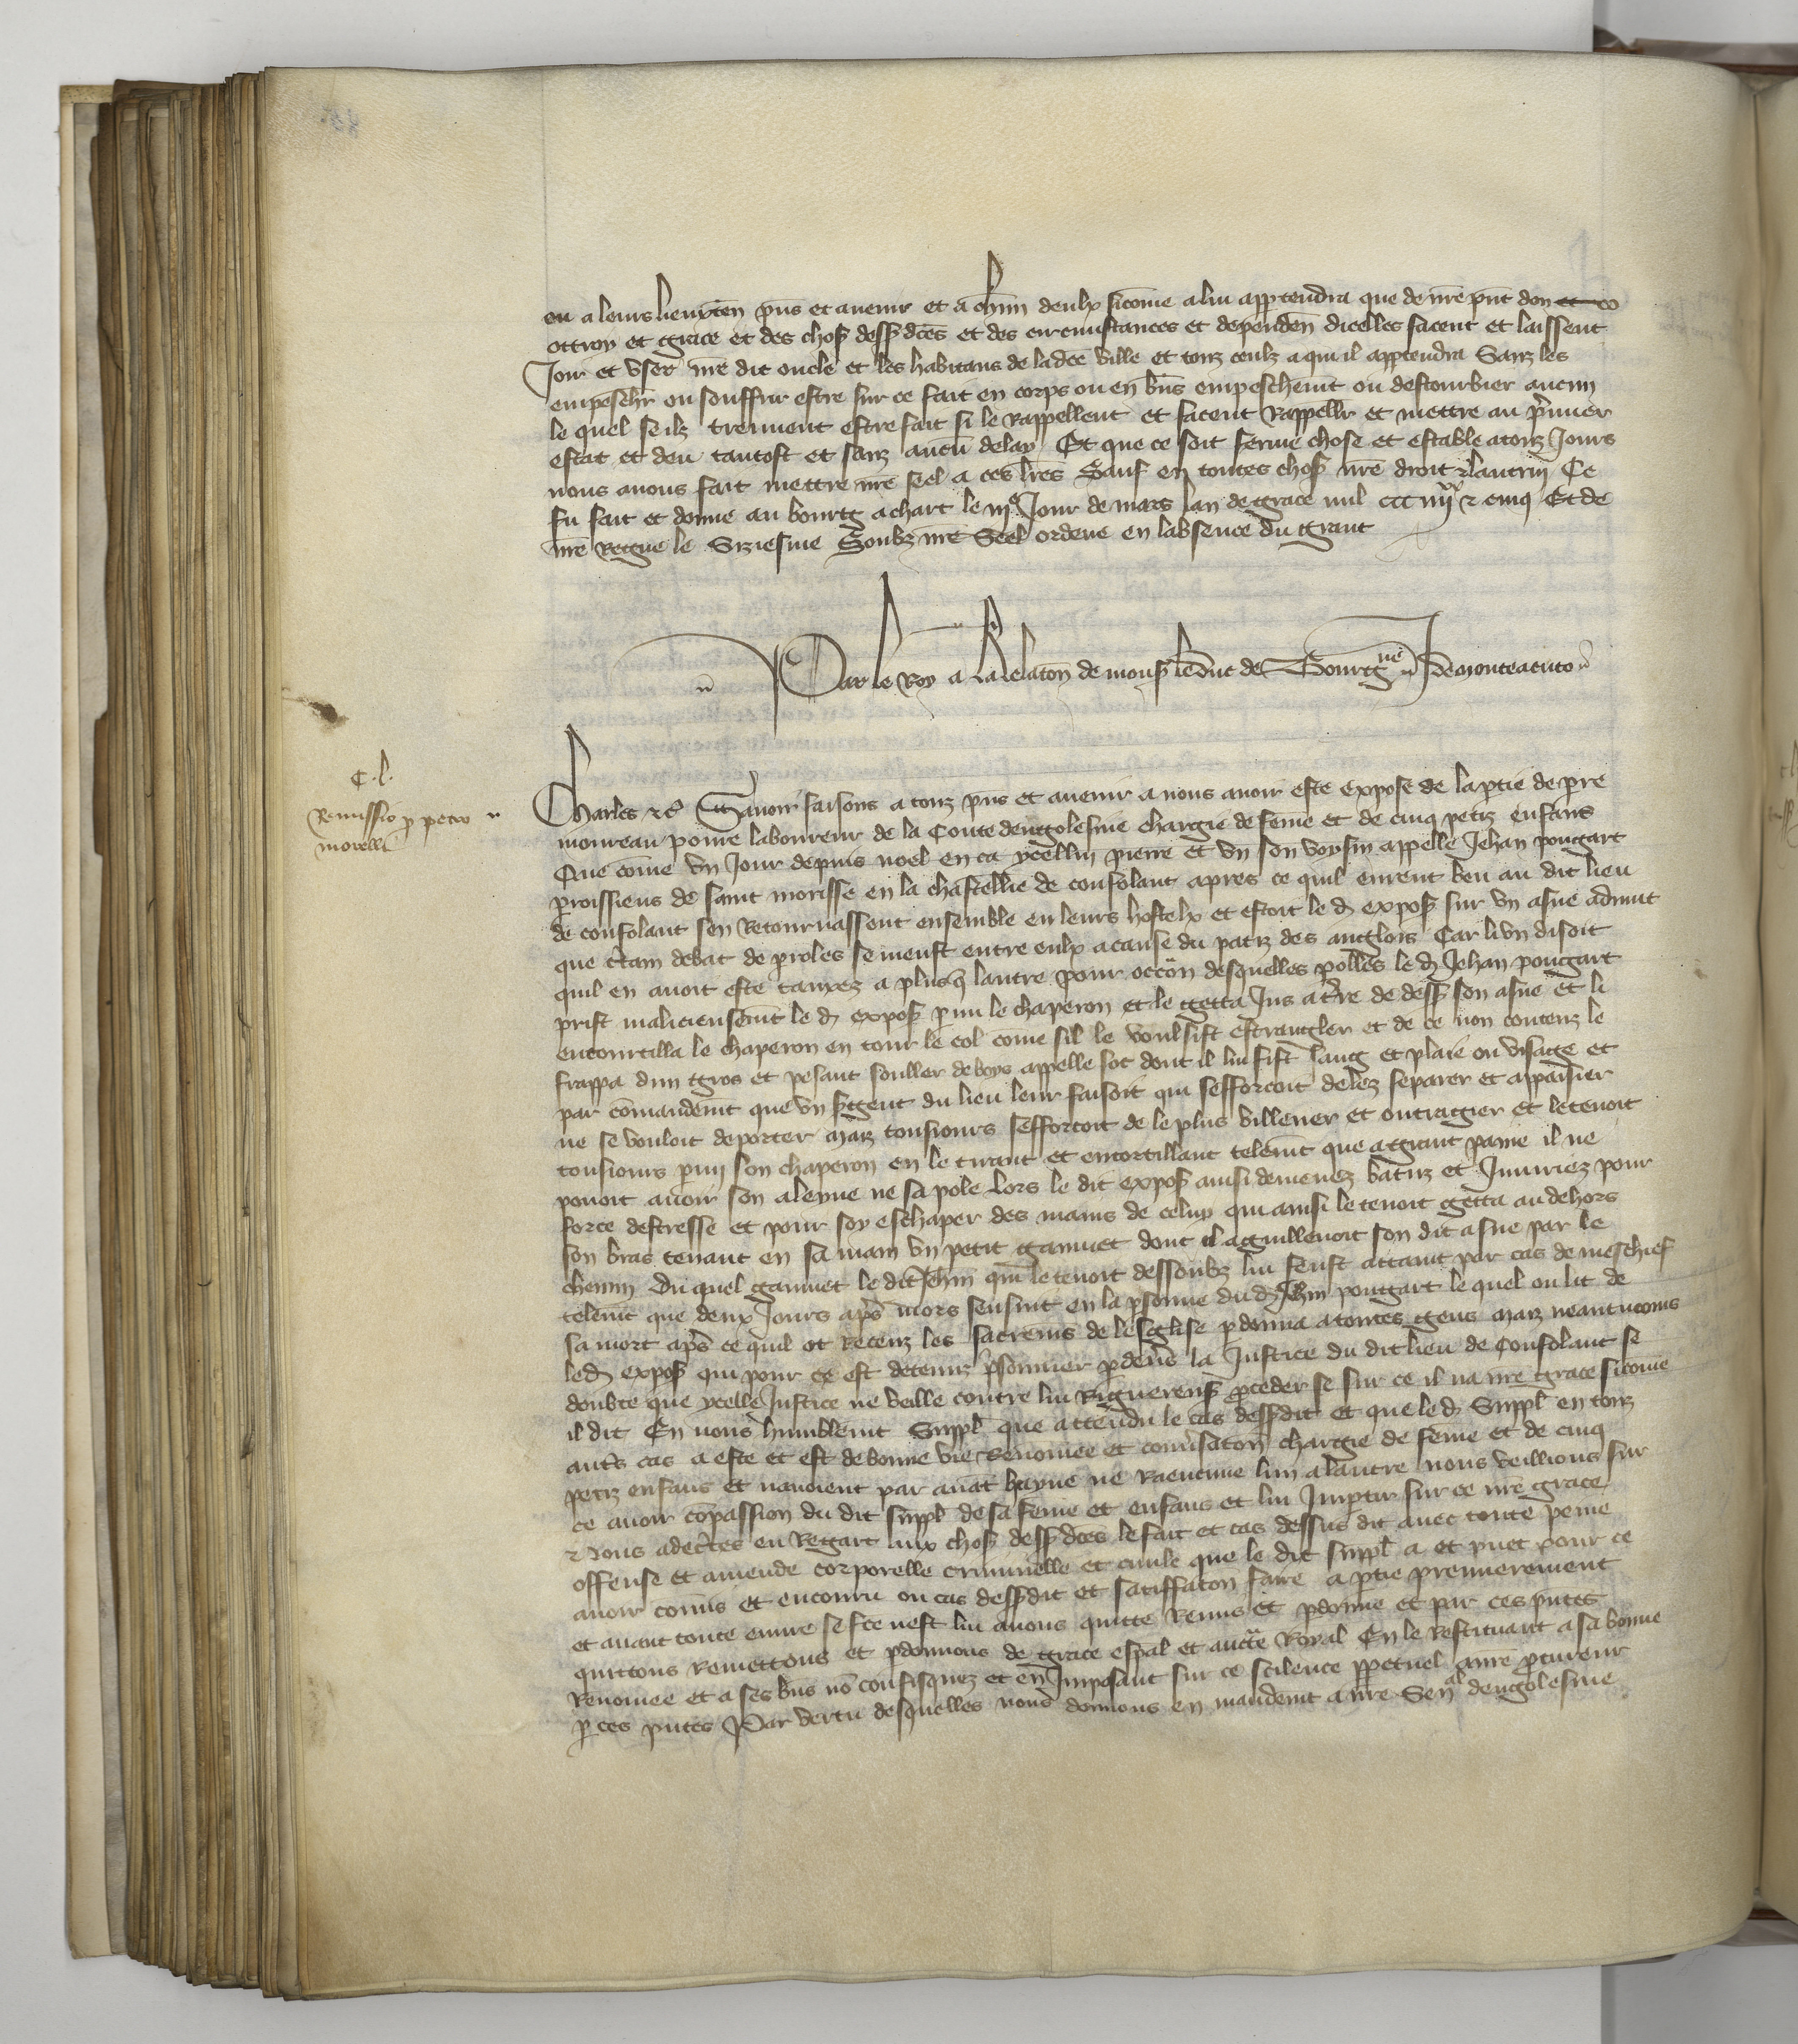 ou a leurs lieuxten p̄ns et avenir et a ch̄un deulx sicōme a lui app̱tendra que de nr̄e pn̄t don
ottroy et grace et des chos̷ dess̷dc̄es et des circunstances et dependen̄ dicelles facent et laissent
Joir et user nr̄e dit oncle et les habitans de ladc̄e ville et touz ceulx a qui il app̱tendra Sanz les
empeschr̄ ou souffrir estre sur ce fait en corps ou en bn̄s empeschem̄t ou destourbier aucun
le quel se ilz treuvent estre fait si le Rappellent et facent Rappellr̄ et mettre au pr̄mier
estat et deu tantost et sanz aucū delay Et que ce soit ferme chose et estable a touz Jours
nous avons fait mettre nr̄e seel a ces lr̄es Sauf en toutes chos̷ nr̄e droit ⁊ lautruy Ce
fu fait et donne au bourg achart le iije Jour de mars lan de grace mil ccc iiijxx ⁊ cinq Et de
nr̄e Regne le Siziesme Soubz nr̄e Seel ordene en labsence du grant
Par le Roy a la relatōn de mons̷ le duc de Bourgne J de monteacuto
C. l.
Remissio p̱ petro
morelli
Charles ⁊c̄ Savoir faisons a touz p̄ns et avenir a nous avoir este expose de la p̱tie de p̱re
moureau povre laboureur de la Conte dengolesme chargie de feme et de cinq petiz enfans
Que cōme un Jour depuis noel en ca ycellui pierre et un son voysin appelle Jehan pougart
p̱roissiens de saint morisse en la chastellie de confolant apres ce quil eurent beu au dit lieu
de confolant sen Retournassent ensemble en leurs hostelx et estoit le d̄ expos̷ sur un asne advint
que c̄tain debat de p̱roles se meust entre eulx a cause du patiz des anglois Car lun disoit
quil en avoit este tauxez a plus q̄ lautre pour occōn desquelles p̱olles le d̄ Jehan pougart
prist malicieusem̄t le d̄ expos̷ p̱mi le chaperon et le getta Jus a t̄re de dess̷ son asne et li
entourtilla le chaperon en tour le col cōme sil le voulsist estrangler et de ce non contenz le
frappa dun gros et pesant souller de boys appelle soc dont il lui fist sang et plaie ou visage et
par cōmandem̄t que un s̷gent du lieu leur faisoit qui sefforcoit delez separer et appaisier
ne se vouloit deporter maiz tousiours sefforcoit de le plus villener et outragier et le tenoit
tousiours p̱mi son chaperon en le tirant et entortillant telem̄t que a grant paine il ne
povoit avoir son aleyne ne sa p̱ole Lors le dit expos̷ ainsi demenez batuz et Iniuriez pour
force destresse et pour soy eschaper des mains de celuy qui ainsi le tenoit getta au dehors
son bras tenant en sa main un petit ganivet dont il aguillenoit son dit asne par le
chemin Du quel ganivet le dit Jehan qui le tenoit dessoubz lui feust attaint par cas de meschief
telem̄t que deux Jours ap̄s mors sensuit en la p̱sonne du d̄ Jehan pougart le quel ou lit de
sa mort ap̄s ce quil ot Receuz les sacremens de leglise p̱donna a toutes gens maiz neantmoins
le d̄ expos̷ qui pour ce est detenuz p̄sonnier p̱ devers la Justice du dit lieu de Confolant se
doubte que ycelle Justice ne veille contre lui Riguereus̷ p̱ceder se sur ce il na nr̄e grace sicōme
il dit En nous humblem̄t Suppl̄ que attendu le cas dess̷dit et que le d̄ Suppl̄ en touz
aut̄s cas a este et est de bonne vie Renōmee et convsatōn chargie de feme et de cinq
petiz enfans et navoient par avāt hayne ne Raencune lun a lautre nous veillions sur
ce avoir cōpassion du dit suppl̄ de sa feme et enfans et lui Imp̱tir sur ce nr̄e grace
⁊ nous adec̄tes en Regart aux chos̷ dess̷dc̄es le fait et cas dessus dit avec toute peine
offense et amende corporelle criminelle et civile que le dit suppl̄ a et puet pour ce
avoir cōmis et encouru ou cas dess̷dit et satiffatōn faire a p̱tie premierement
et avant toute euvre se fc̄e nest lui avons quitte Remis et p̱donne et par ces p̄ntes
quittons Remettons et p̱donnons de grace esp̄al et auctē Royal En le Restituant a sa bonne
Renōmee et a ses bn̄s nō confisquez et en Imposant sur ce scilence p̱petuel a nr̄e p̱cureur
p̱ ces p̄ntes Par vertu desquelles nous donnons en mandem̄t a nr̄e Senal dengolesme